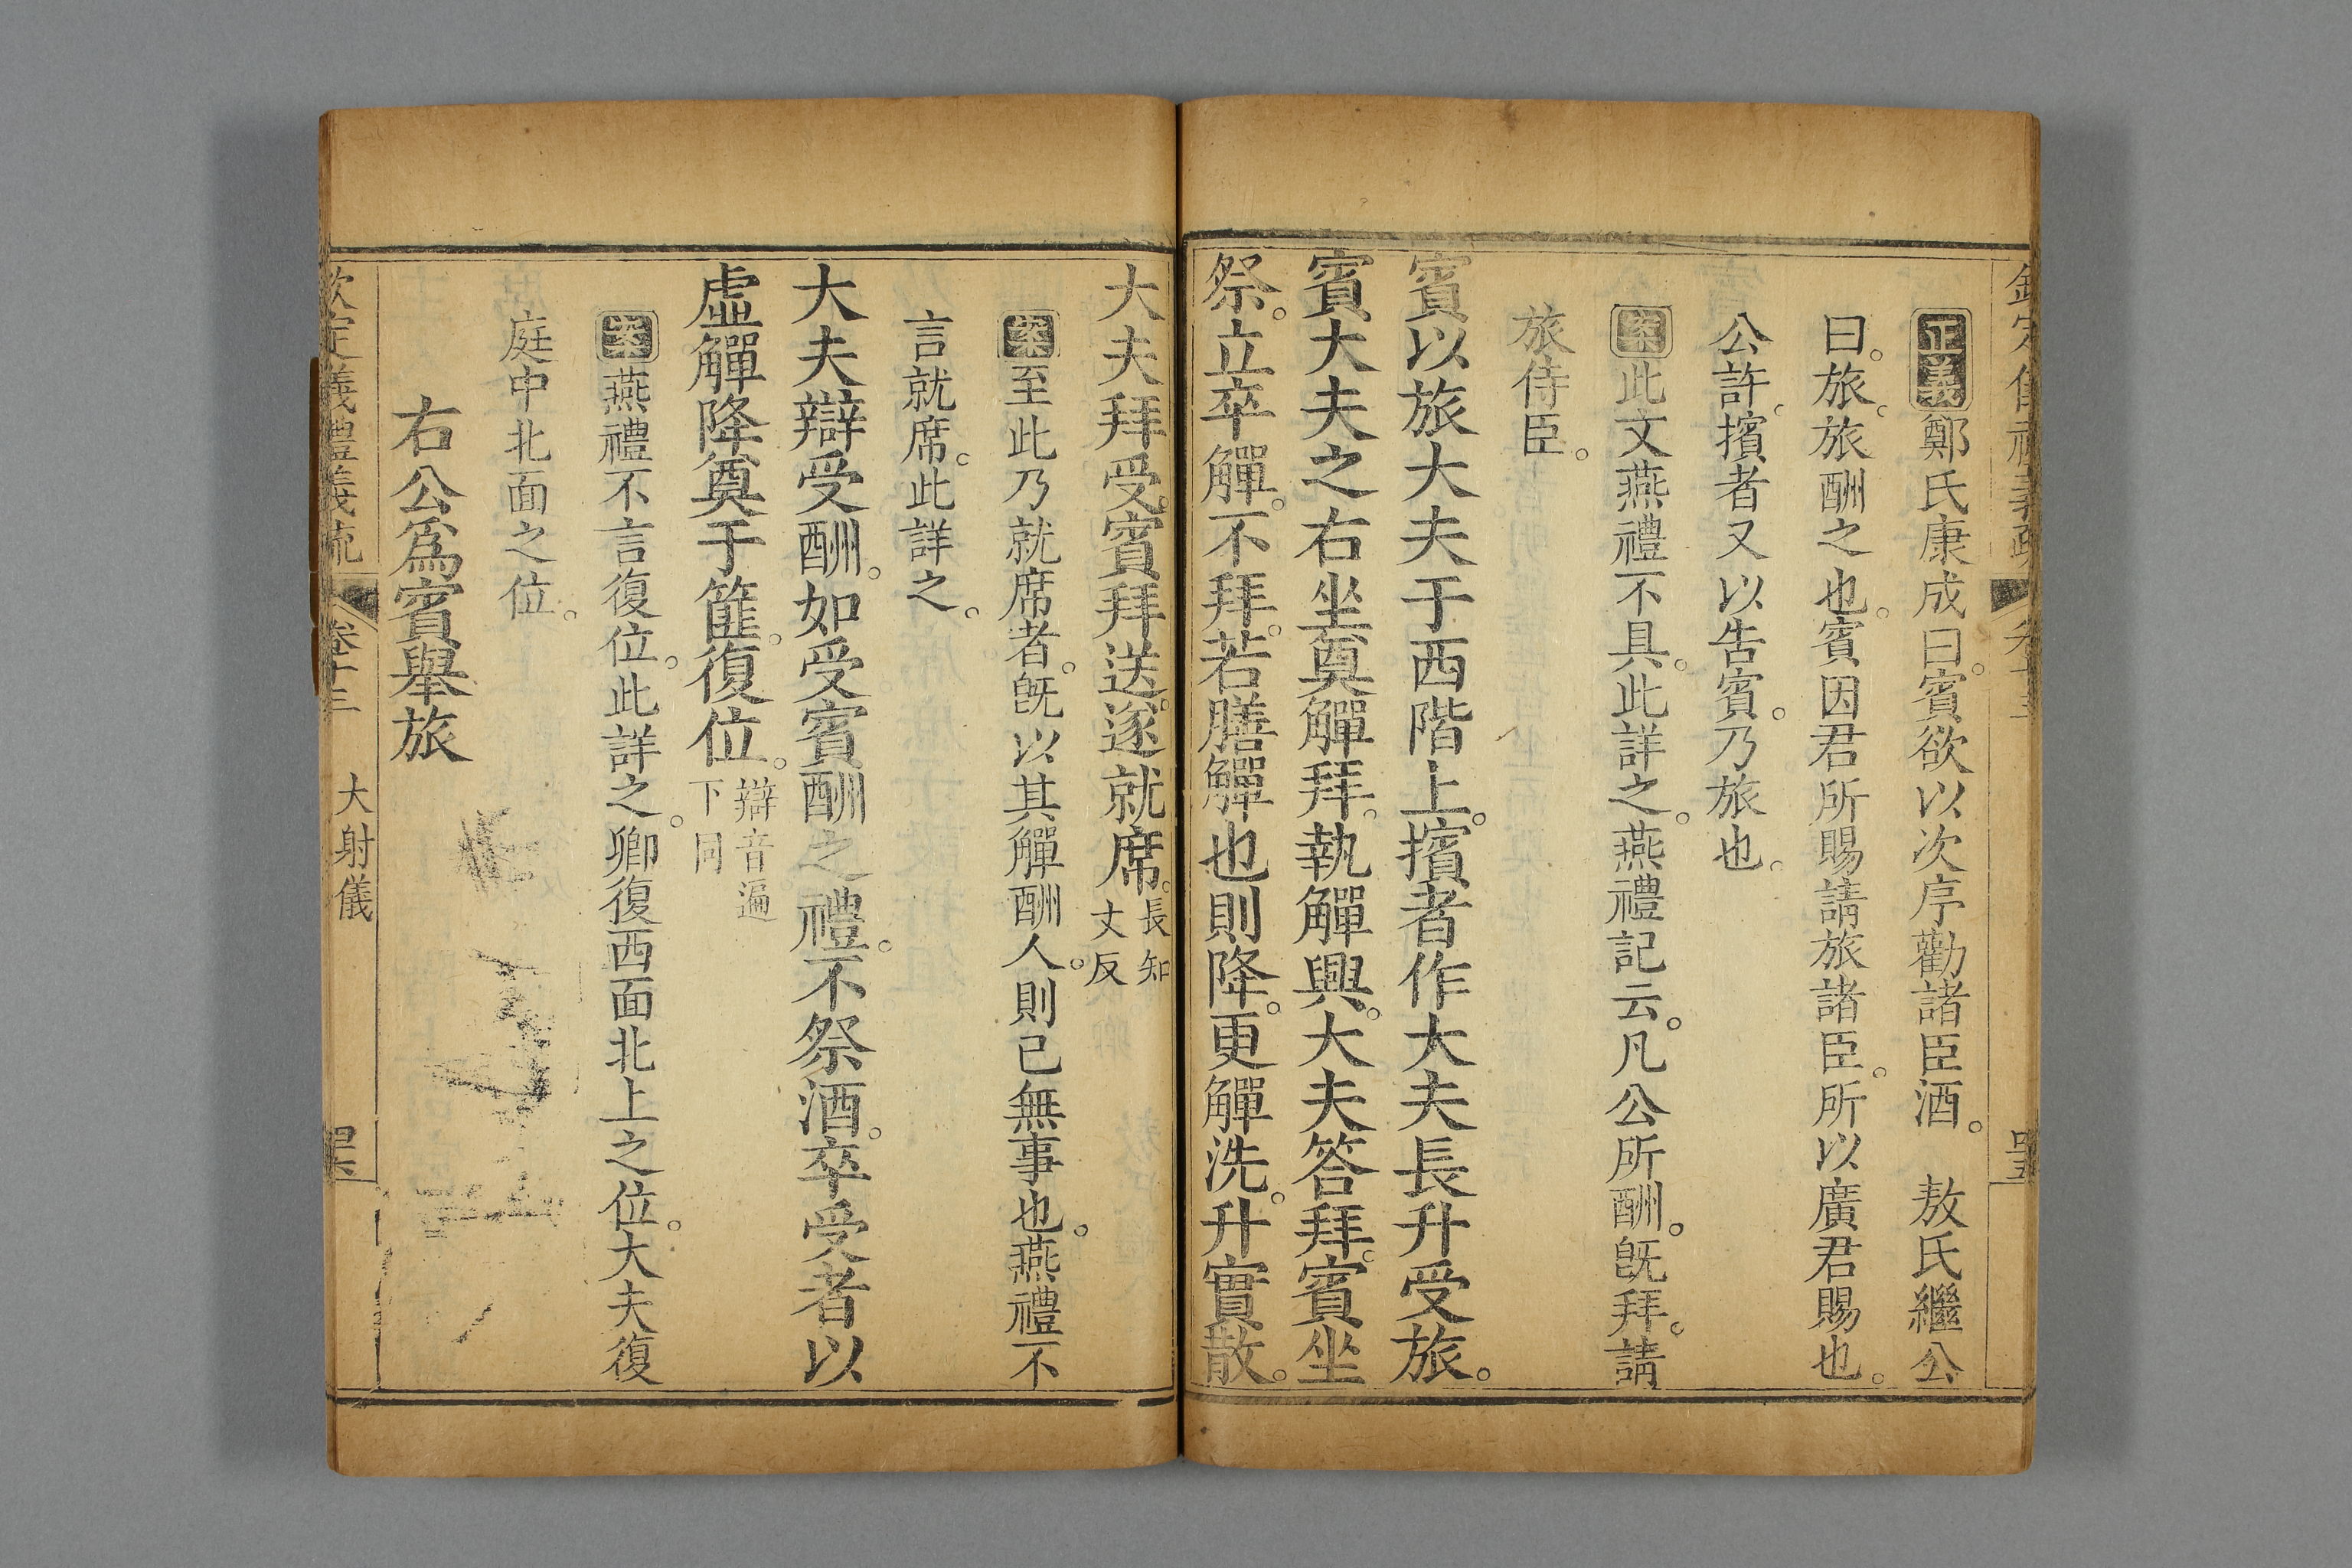 欽定儀禮義疏 卷十三 四五
正義鄭氏康成曰。賓欲以次序勸諸臣酒。 敖氏繼公
曰。旅。旅酬之也。賓因君所賜請旅諸臣。所以廣君賜也。
公許。擯者又以告賓。乃旅也。
案此文燕禮不具。此詳之。燕禮記云。凡公所酬。旣拜。請
旅侍臣。
賓以旅大夫于西階上。擯者作大夫長升受旅。
賓大夫之右坐奠觶拜。執觶興。大夫答拜。賓坐
祭。立卒觶。不拜。若膳觶也則降。更觶洗。升實散。
大夫拜受。賓拜送。遂就席。長知丈反
案至此乃就席者。旣以其觶酬人。則已無事也。燕禮不
言就席。此詳之。
大夫辯受酬。如受賓酬之禮。不祭酒。卒受者以
虛觶降奠于篚。復位。辯音遍下同
案燕禮不言復位。此詳之。卿復西面北上之位。大夫復
庭中北面之位。
右公爲賓舉旅
欽定儀禮義疏 卷十三 大射儀